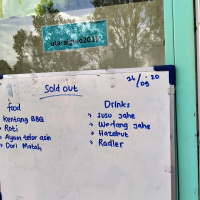 26/09 - 20
Sold out
food
kentang BBQ
Roti
Ayam telor asin
Dori Matah
Drinks
Susu Jahe
Wedang Jahe
Hazelnut
Radler